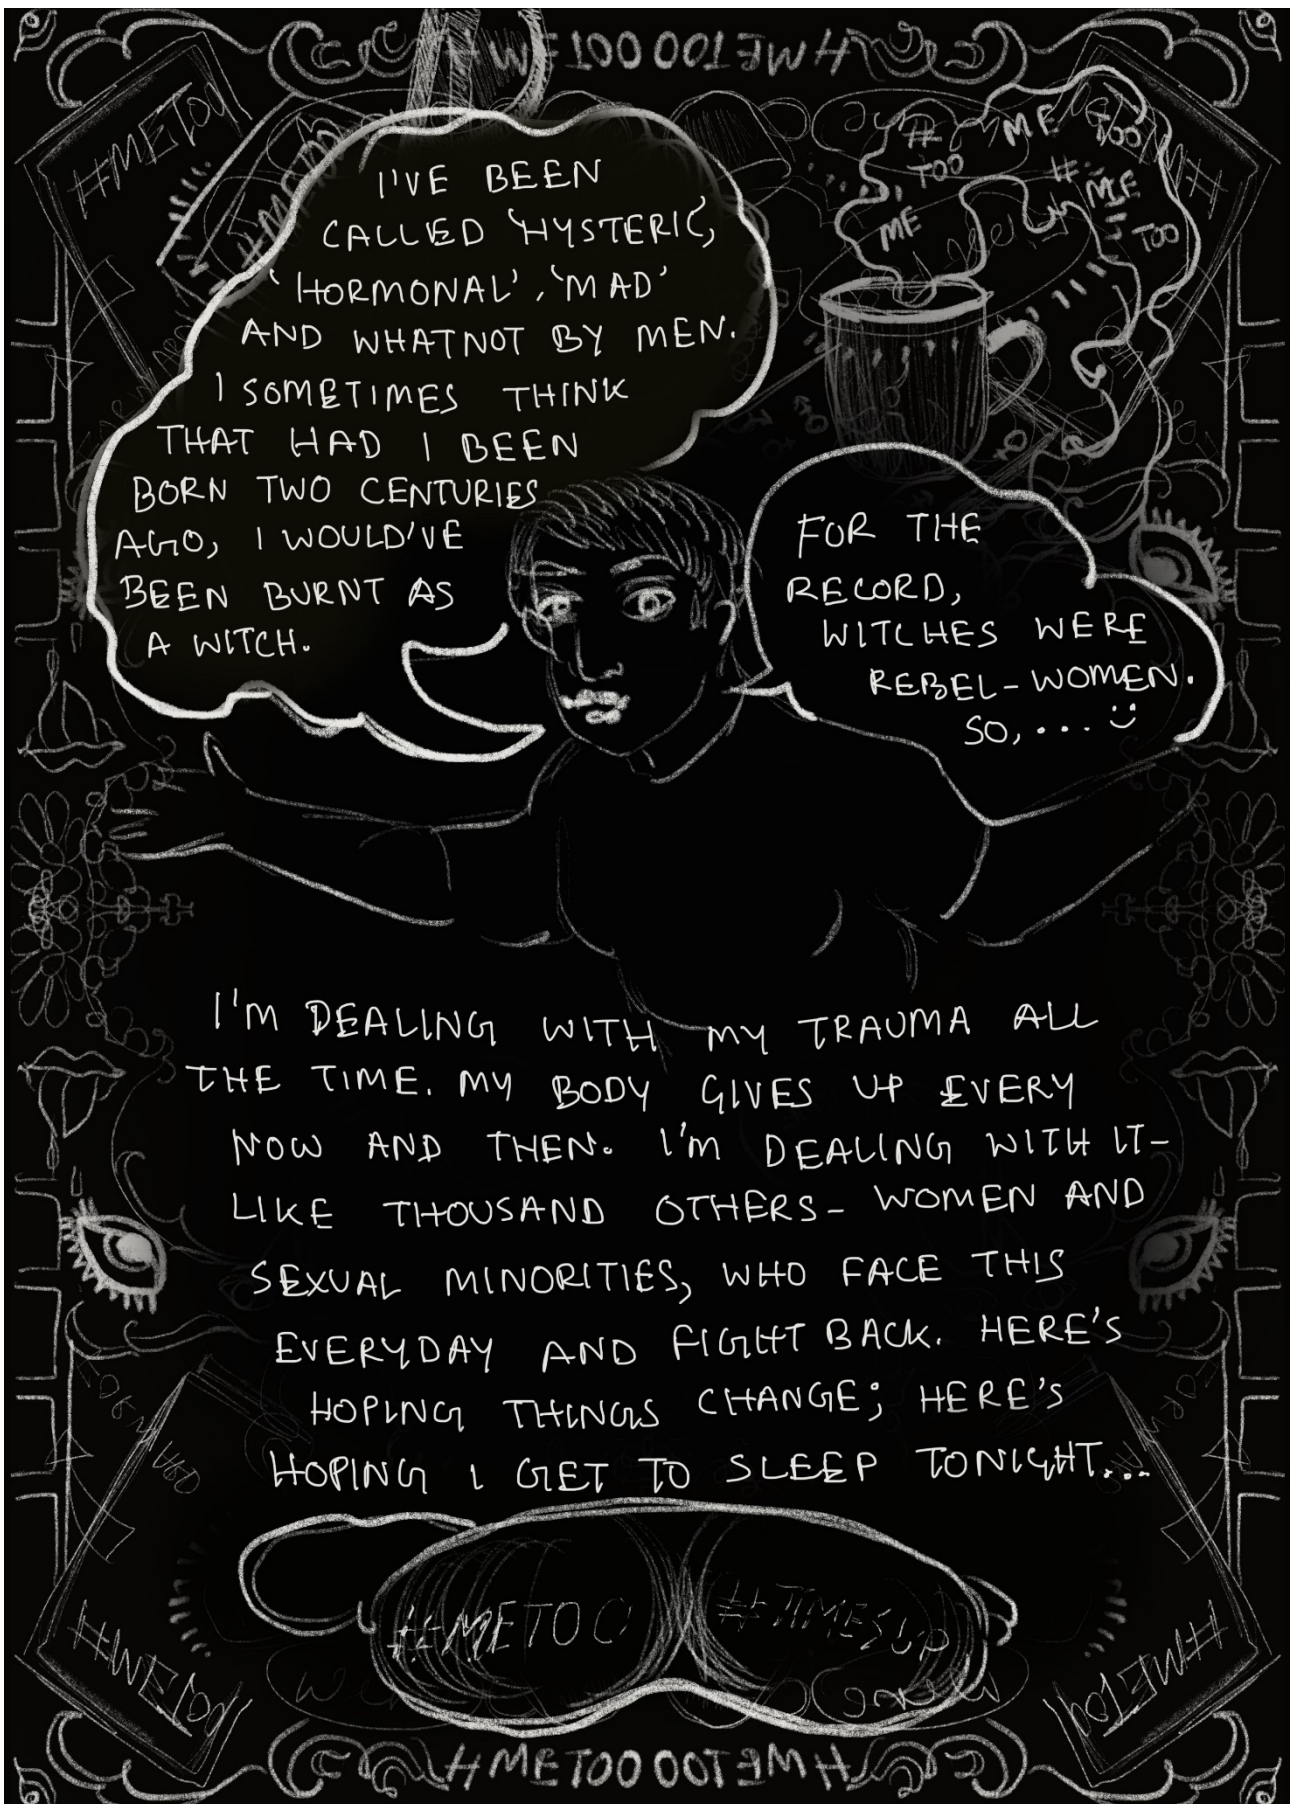 #METOO OOTEM#
#METOO
# ME TOO
TOO # ME
ME TOO
I'VE BEEN
CALLED 'HYSTERIC',
'HORMONAL', 'MAD'
AND WHATNOT BY MEN.
I SOMETIMES THINK
THAT HAD I BEEN
BORN TWO CENTURIES
AGO, I WOULD'VE
BEEN BURNT AS
A WITCH.
FOR THE
RECORD,
WITCHES WERE
REBEL-WOMEN.
SO, ... :)
I'M DEALING WITH MY TRAUMA ALL
THE TIME. MY BODY GIVES UP EVERY
NOW AND THEN. I'M DEALING WITH IT-
LIKE THOUSAND OTHERS- WOMEN AND
SEXUAL MINORITIES, WHO FACE THIS
EVERYDAY AND FIGHT BACK. HERE'S
HOPING THINGS CHANGE; HERE'S
HOPING I GET TO SLEEP TONIGHT...
#METOO #TIMESUP
#METOO #METOO
#METOO OOTEM#